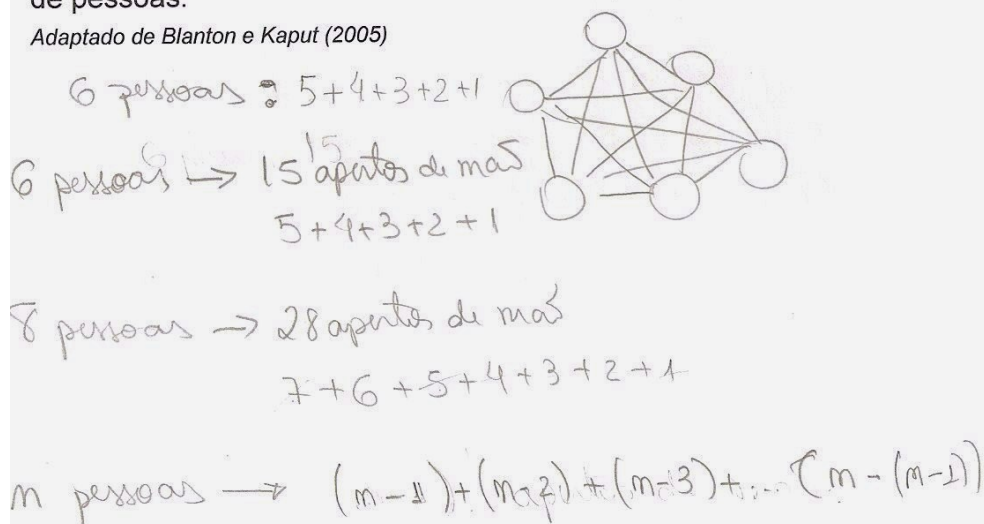 de pessoas.
Adaptado de Blanton e Kaput (2005)
6 pessoas : 5+4+3+2+1
6 pessoas → 15 apertos de mão
5+4+3+2+1
8 pessoas → 28 apertos de mão
7+6+5+4+3+2+1
n pessoas → (n-1)+(n-2)+(n-3)+... (n-(n-1))